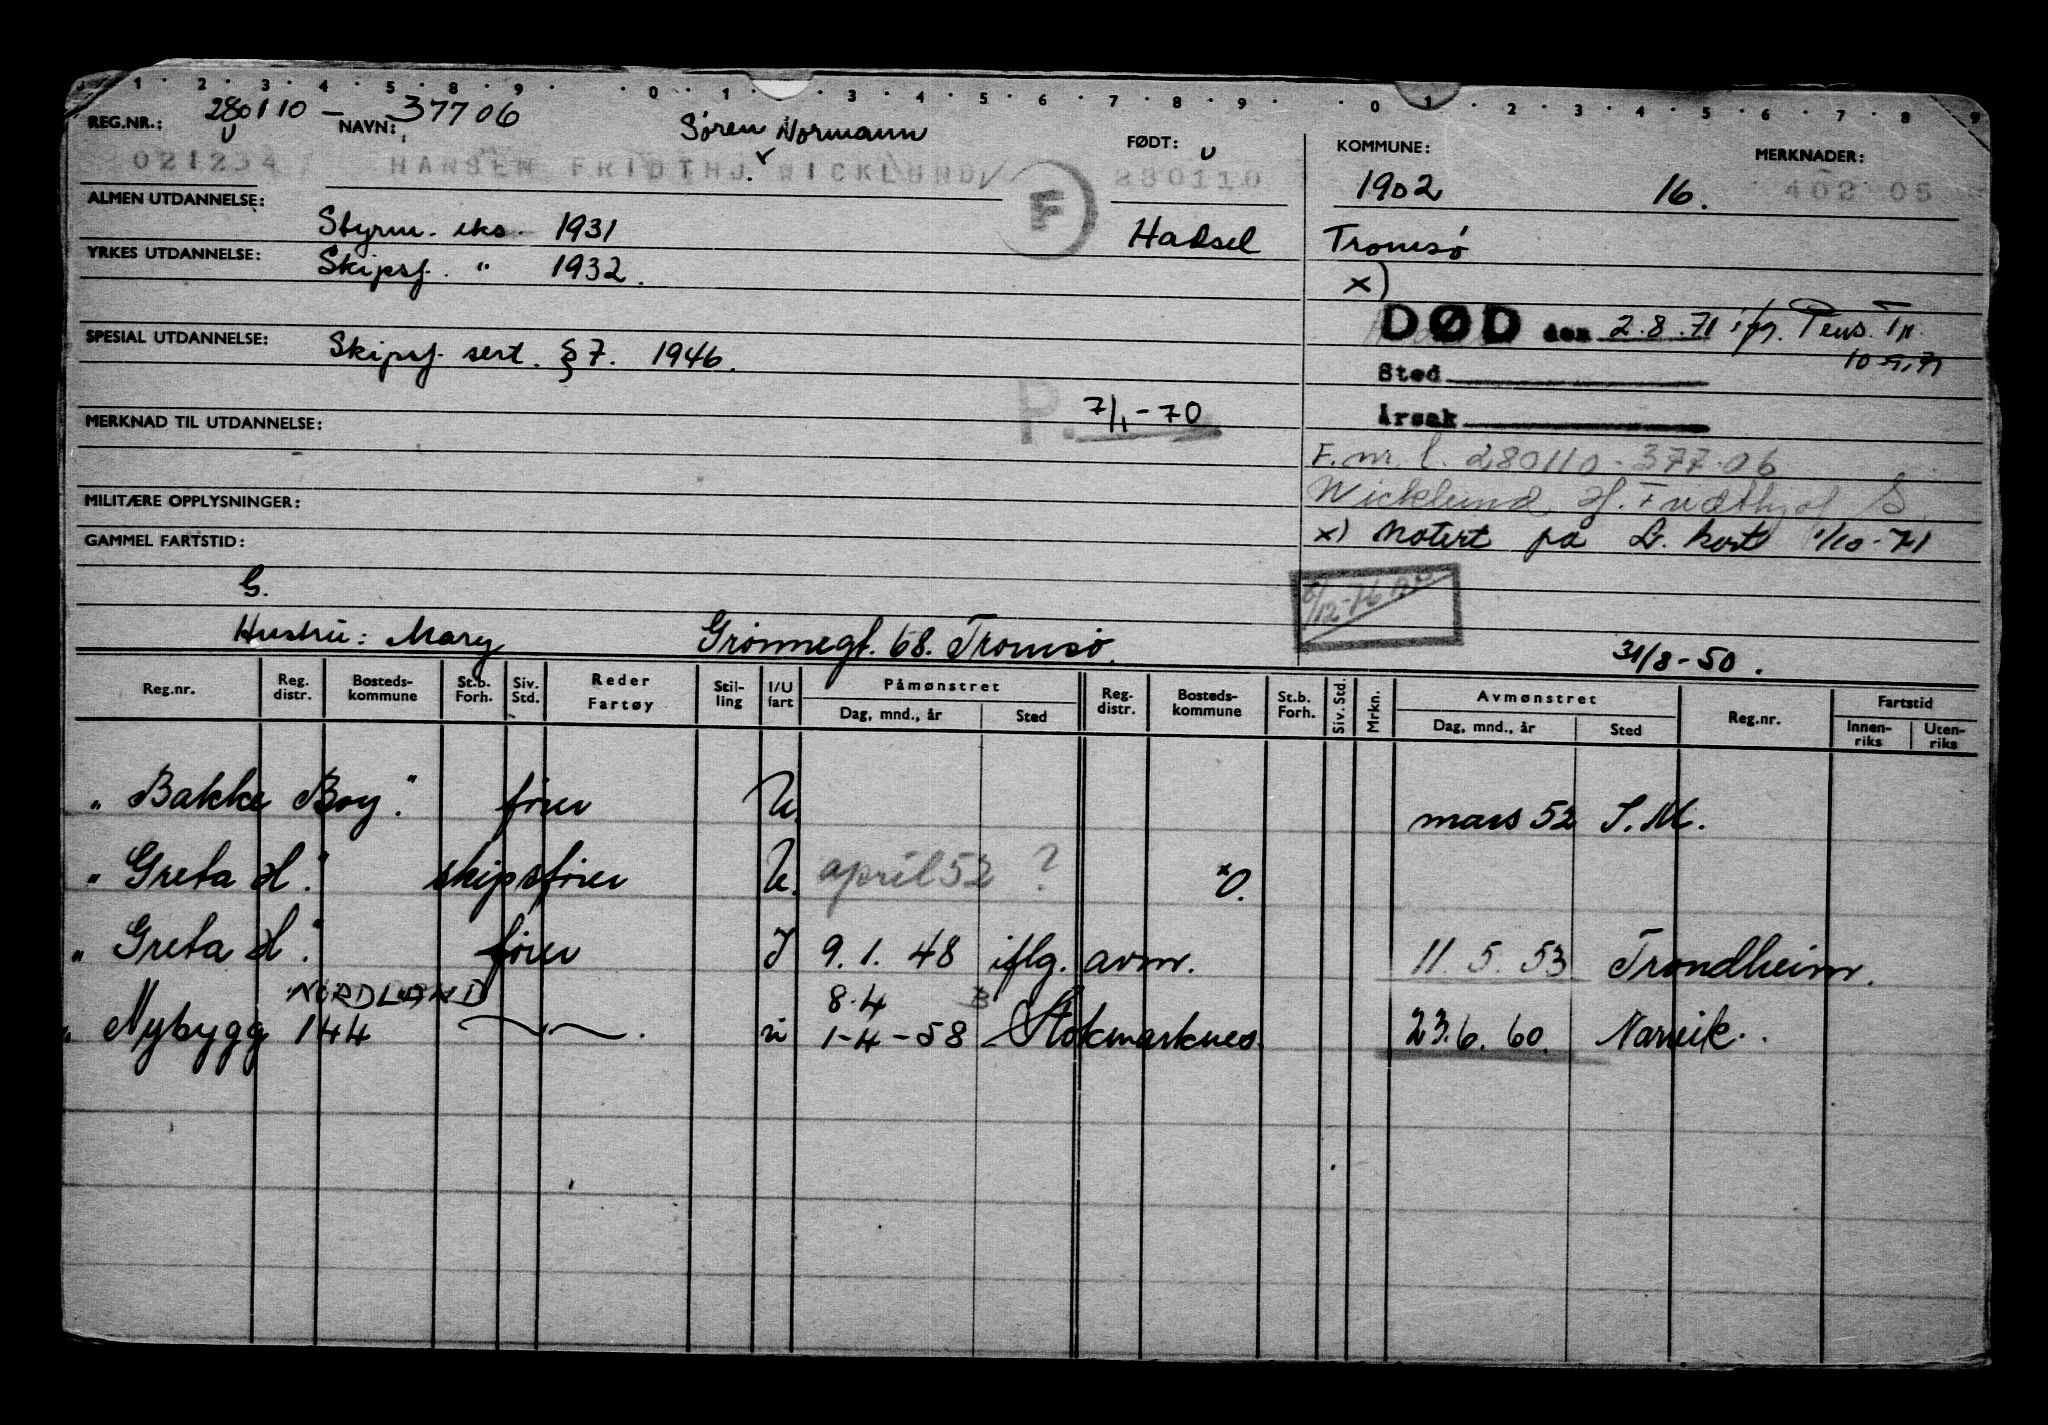 1 2 3 4 5 8 9 0 1 3 4 5 6 7 8 9 0 1 2 3 4 5 6 7 8 9
280110 - 37706
REG.NR.: NAVN: Sören Normann FØDT: KOMMUNE: MERKNADER:
021234 HANSEN FRIDTHJ WICKLUND F 280110 1902 16. 402 05
ALMEN UTDANNELSE: Styrm. eks. 1931 Hadsel Tromsö
YRKES UTDANNELSE: Skipsf. " 1932. x)
DØD den 2.8.71 ifg. Pens. Tr.
SPESIAL UTDANNELSE: Skipsf. sert. § 7. 1946.
10-9-71
Sted
P. 7/1-70
Årsak
MERKNAD TIL UTDANNELSE:
F. nr. l. 280110-377-06
MILITÆRE OPPLYSNINGER: Wicklund H. Fridthjof S.
GAMMEL FARTSTID: x) Notert på L. kort 1/10-71
G.
8/12-76
Hustru: Mary Grönnegt. 68. Tromsö. 31/8-50.
Reg.nr. Reg. distr. Bosteds-kommune St.b. Forh. Siv. Std. Reder Fartøy Stil-ling I/U fart Påmønstret Dag, mnd., år Sted Reg. distr. Bosteds-kommune St.b. Forh. Siv. Std. Mrkn. Avmønstret Dag, mnd., år Sted Reg.nr. Fartstid Innen-riks Uten-riks
"Bakke Boy." fører U. mars 52 S.M.
"Greta H." skipsfører U. april 52 ? x0.
"Greta H." fører I 9.1.48 iflg. avm. 11.5.53 Trondheim.
NORDLAND 8.4 B
"Nybygg 144 —"— . u 1-4-58 Stokmarknes. 23.6.60. Narvik.